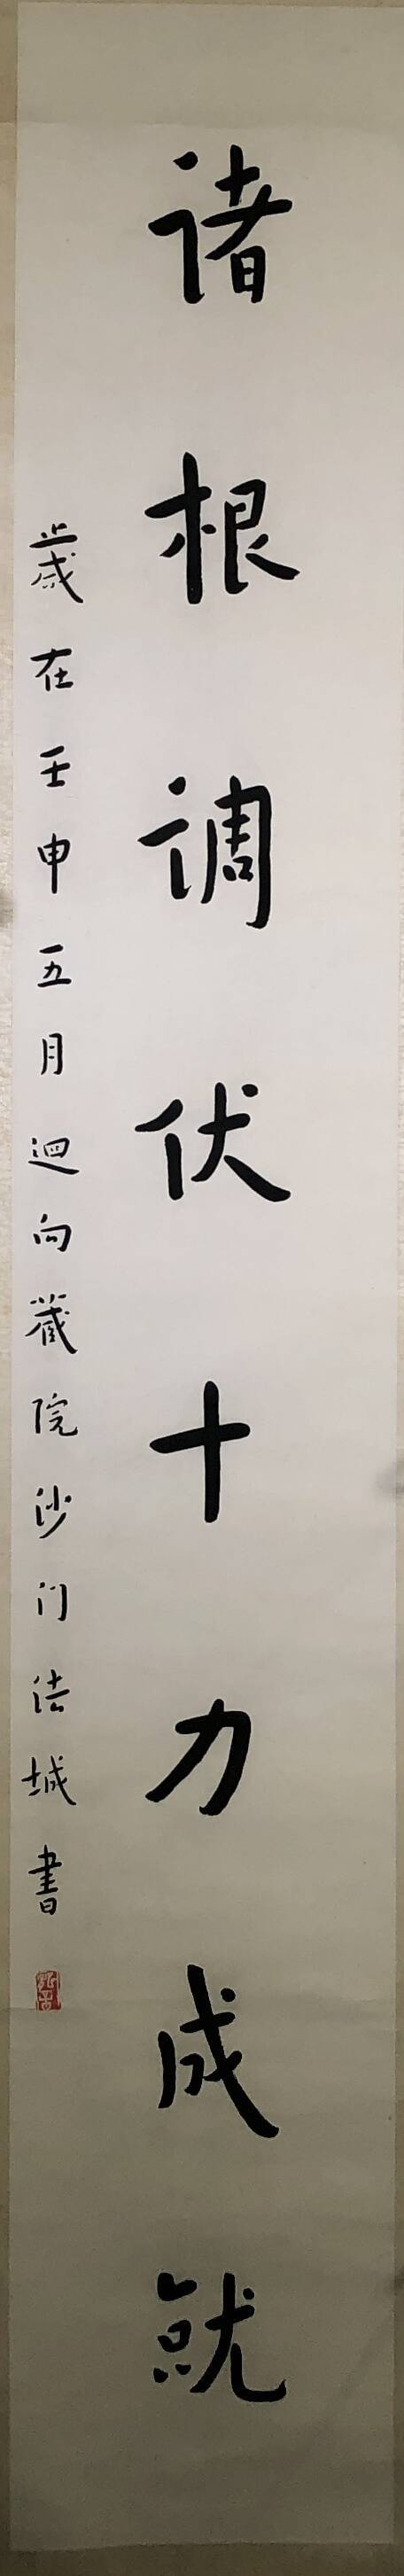 诸根调伏十力成就
歲在壬申五月迴向藏院沙门法城書